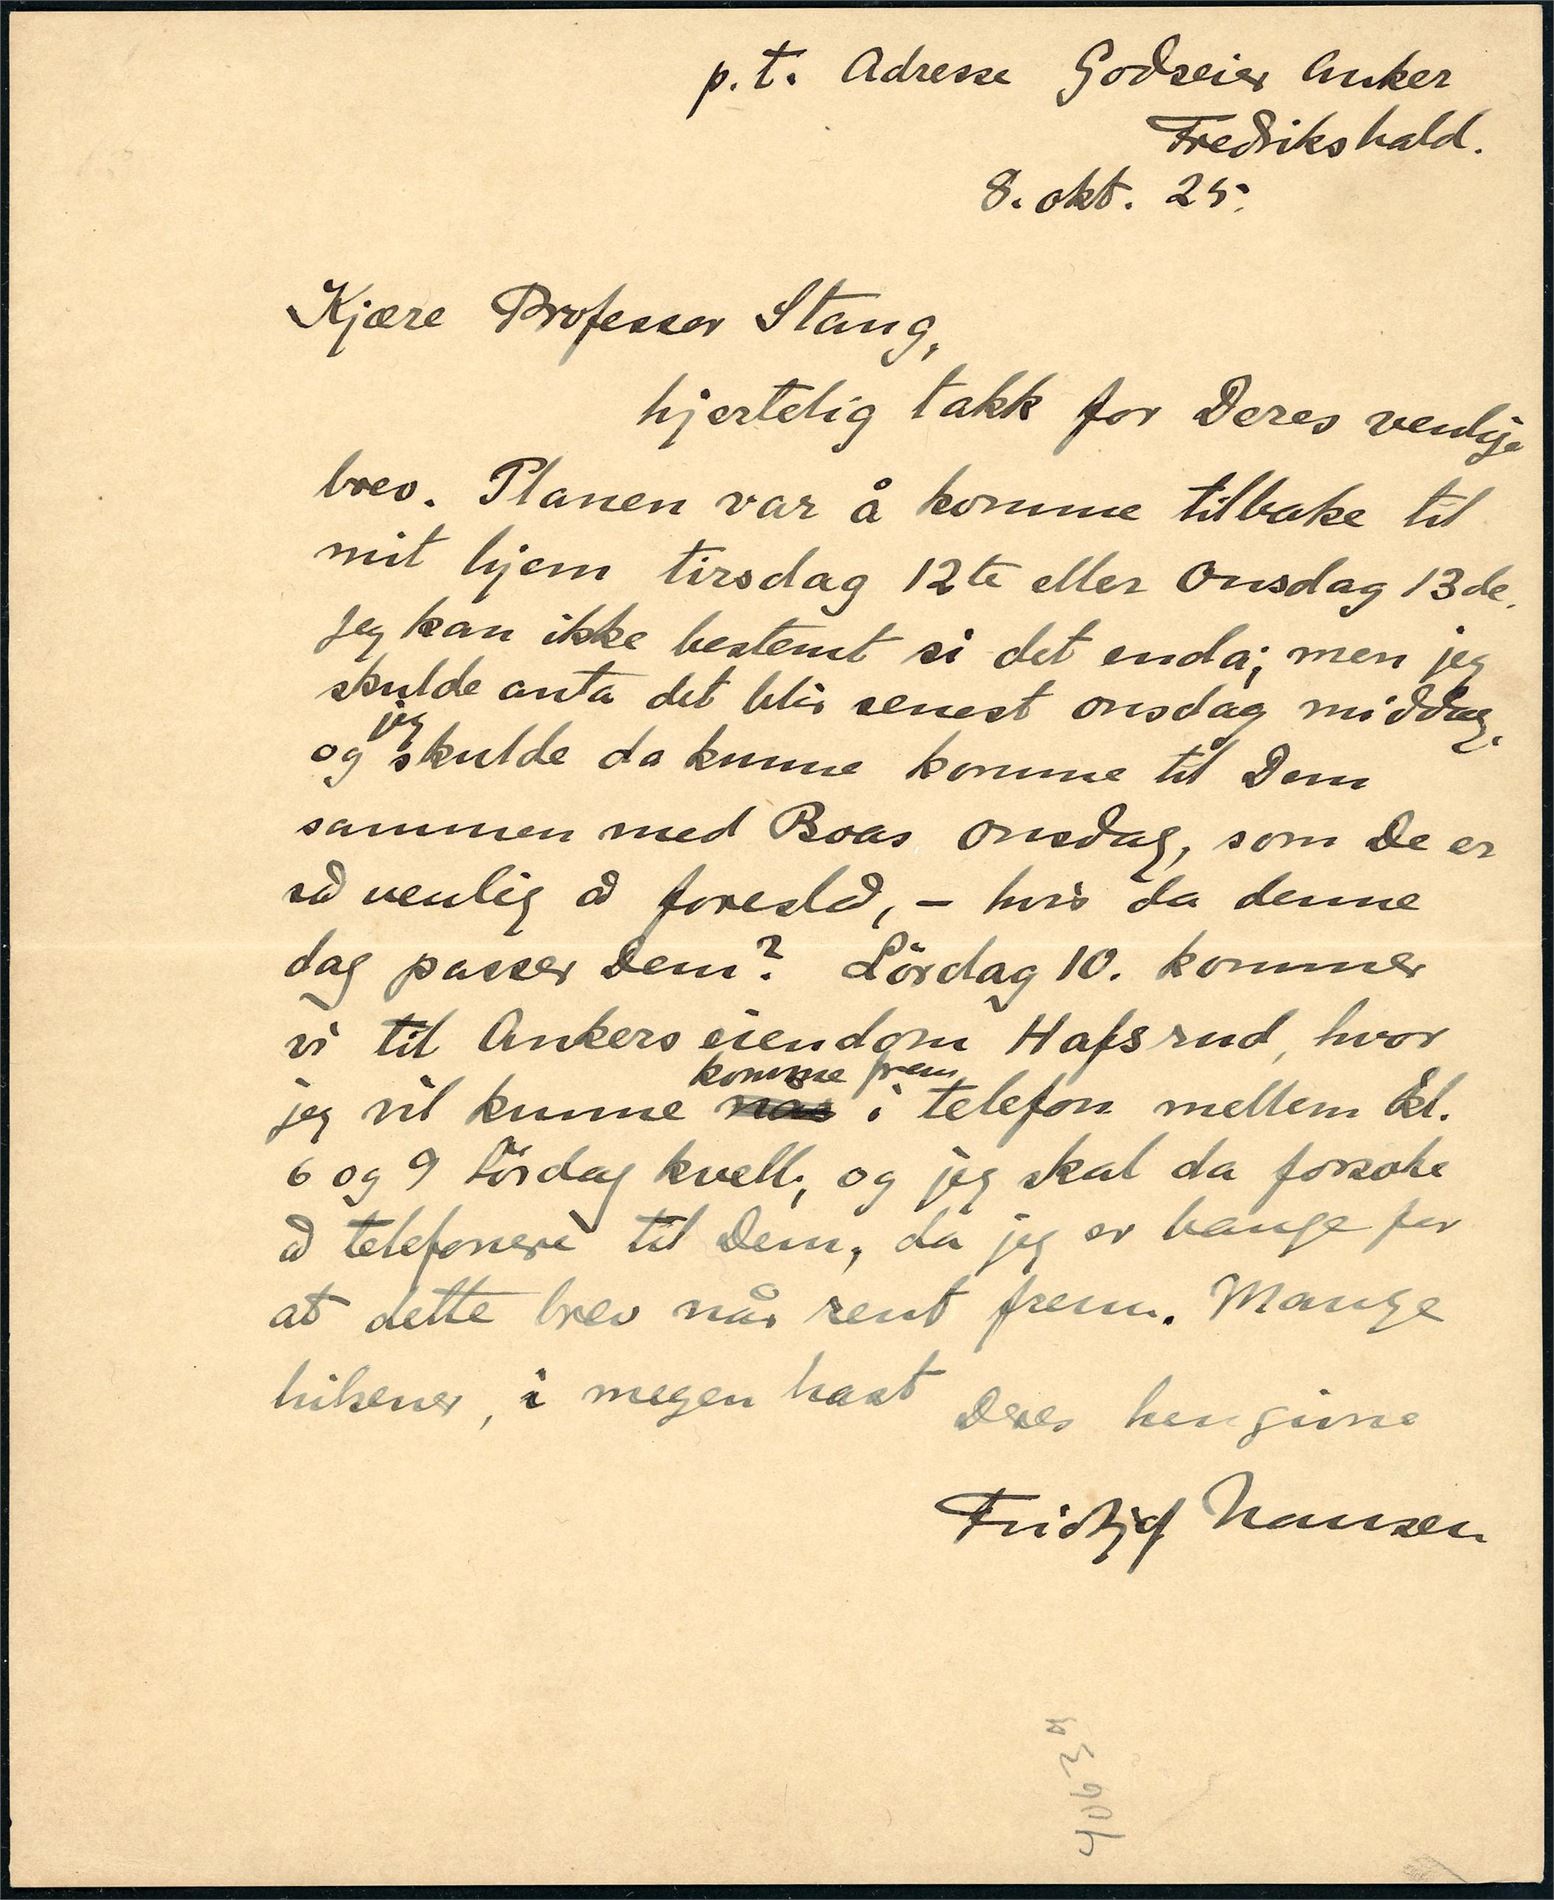 p.t. Adresse Godseier Anker
Fredrikshald.
8. okt. 25.
Kjære Professor Stang,
hjertelig takk for Deres venlige
brev. Planen var å komme tilbake til
mit hjem tirsdag 12te eller Onsdag 13de.
Jeg kan ikke bestemt si det enda; men jeg
skulde anta det blir senest onsdag middag,
og jeg skulde da kunne komme til Dem
sammen med Boas Onsdag, som De er
så venlig å foreslå, – hvis da denne
dag passer Dem? Lördag 10. kommer
vi til Ankers eiendom Hafsrud, hvor
komme frem
jeg vil kunne nåes i telefon mellem kl.
6 og 9 Lördag kvell, og jeg skal da forsöke
å telefonere til Dem, da jeg er bange for
at dette brev når sent frem. Mange
hilsener, i megen hast Deres hengivne
Fridtjof Nansen